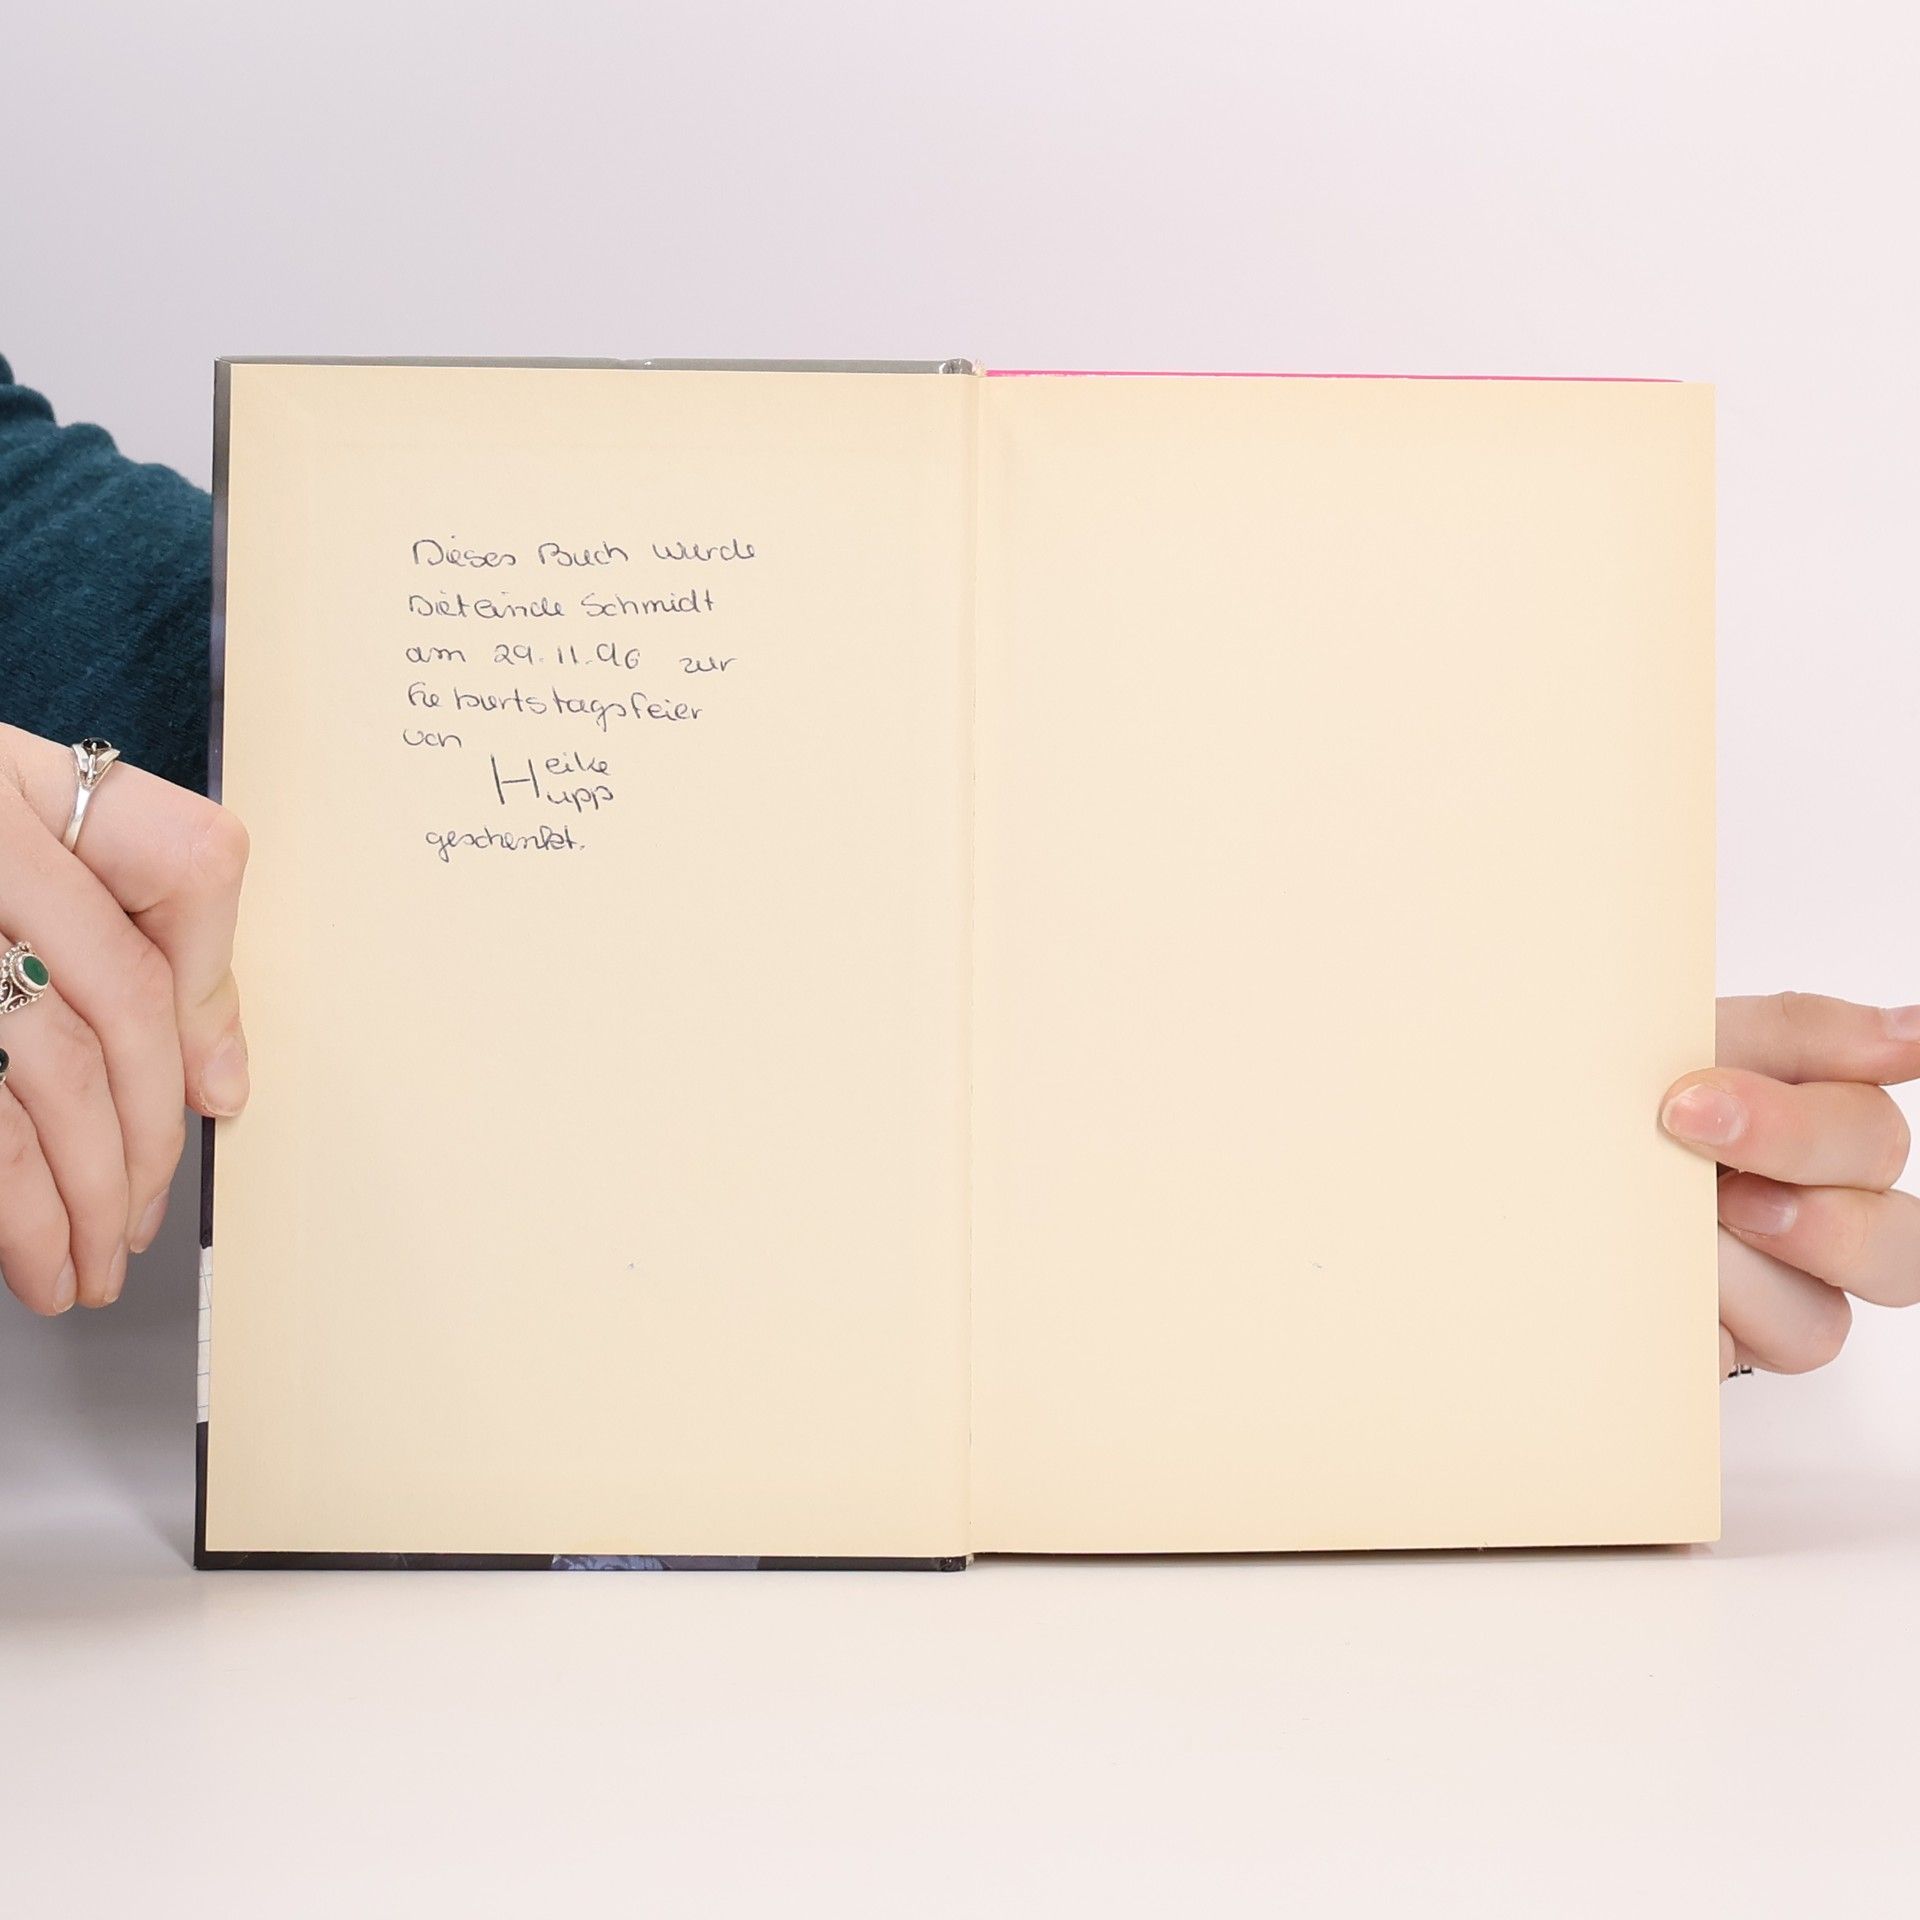 Dieses Buch wurde
Dietlinde Schmidt
am 29.11.96 zur
Geburtstagsfeier
von
Heike
Hupp
geschenkt.